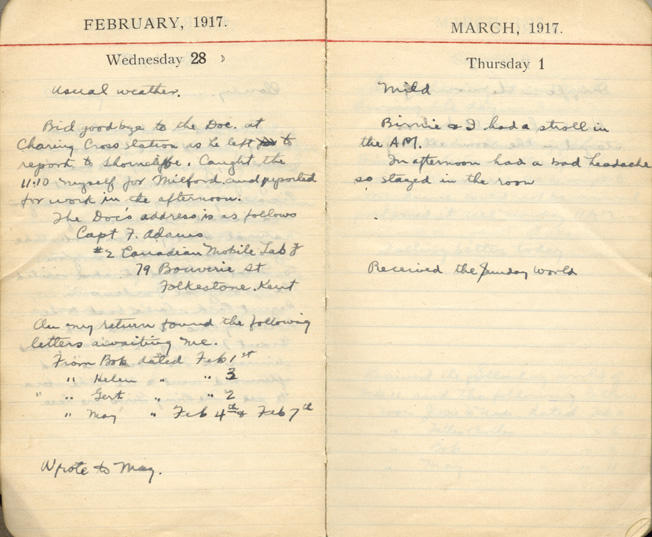 FEBRUARY, 1917.
Wednesday 28
Usual weather.
Bid goodbye to the Doc. at
Charing Cross Station as he left to
report to Shorncliffe. Caught the
11:10 myself for Milford and reported
for word in the afternoon.
The Doc's address is as follows
Capt F. Adams
#2 Canadian Mobile Lab
79 Bouverie St
Folkestone. Kent
On my return found the following
letters awaiting me.
From Bob dated Feb 1st
" Helen " " 3
" Gert " " 2
" May " Feb 4th & Feb 7th
Wrote to May.
MARCH, 1917.
Thursday 1
Mild
Binnie & I had a stroll in
the AM.
In afternoon had a bad headache
so stayed in the room
Received the Sunday World